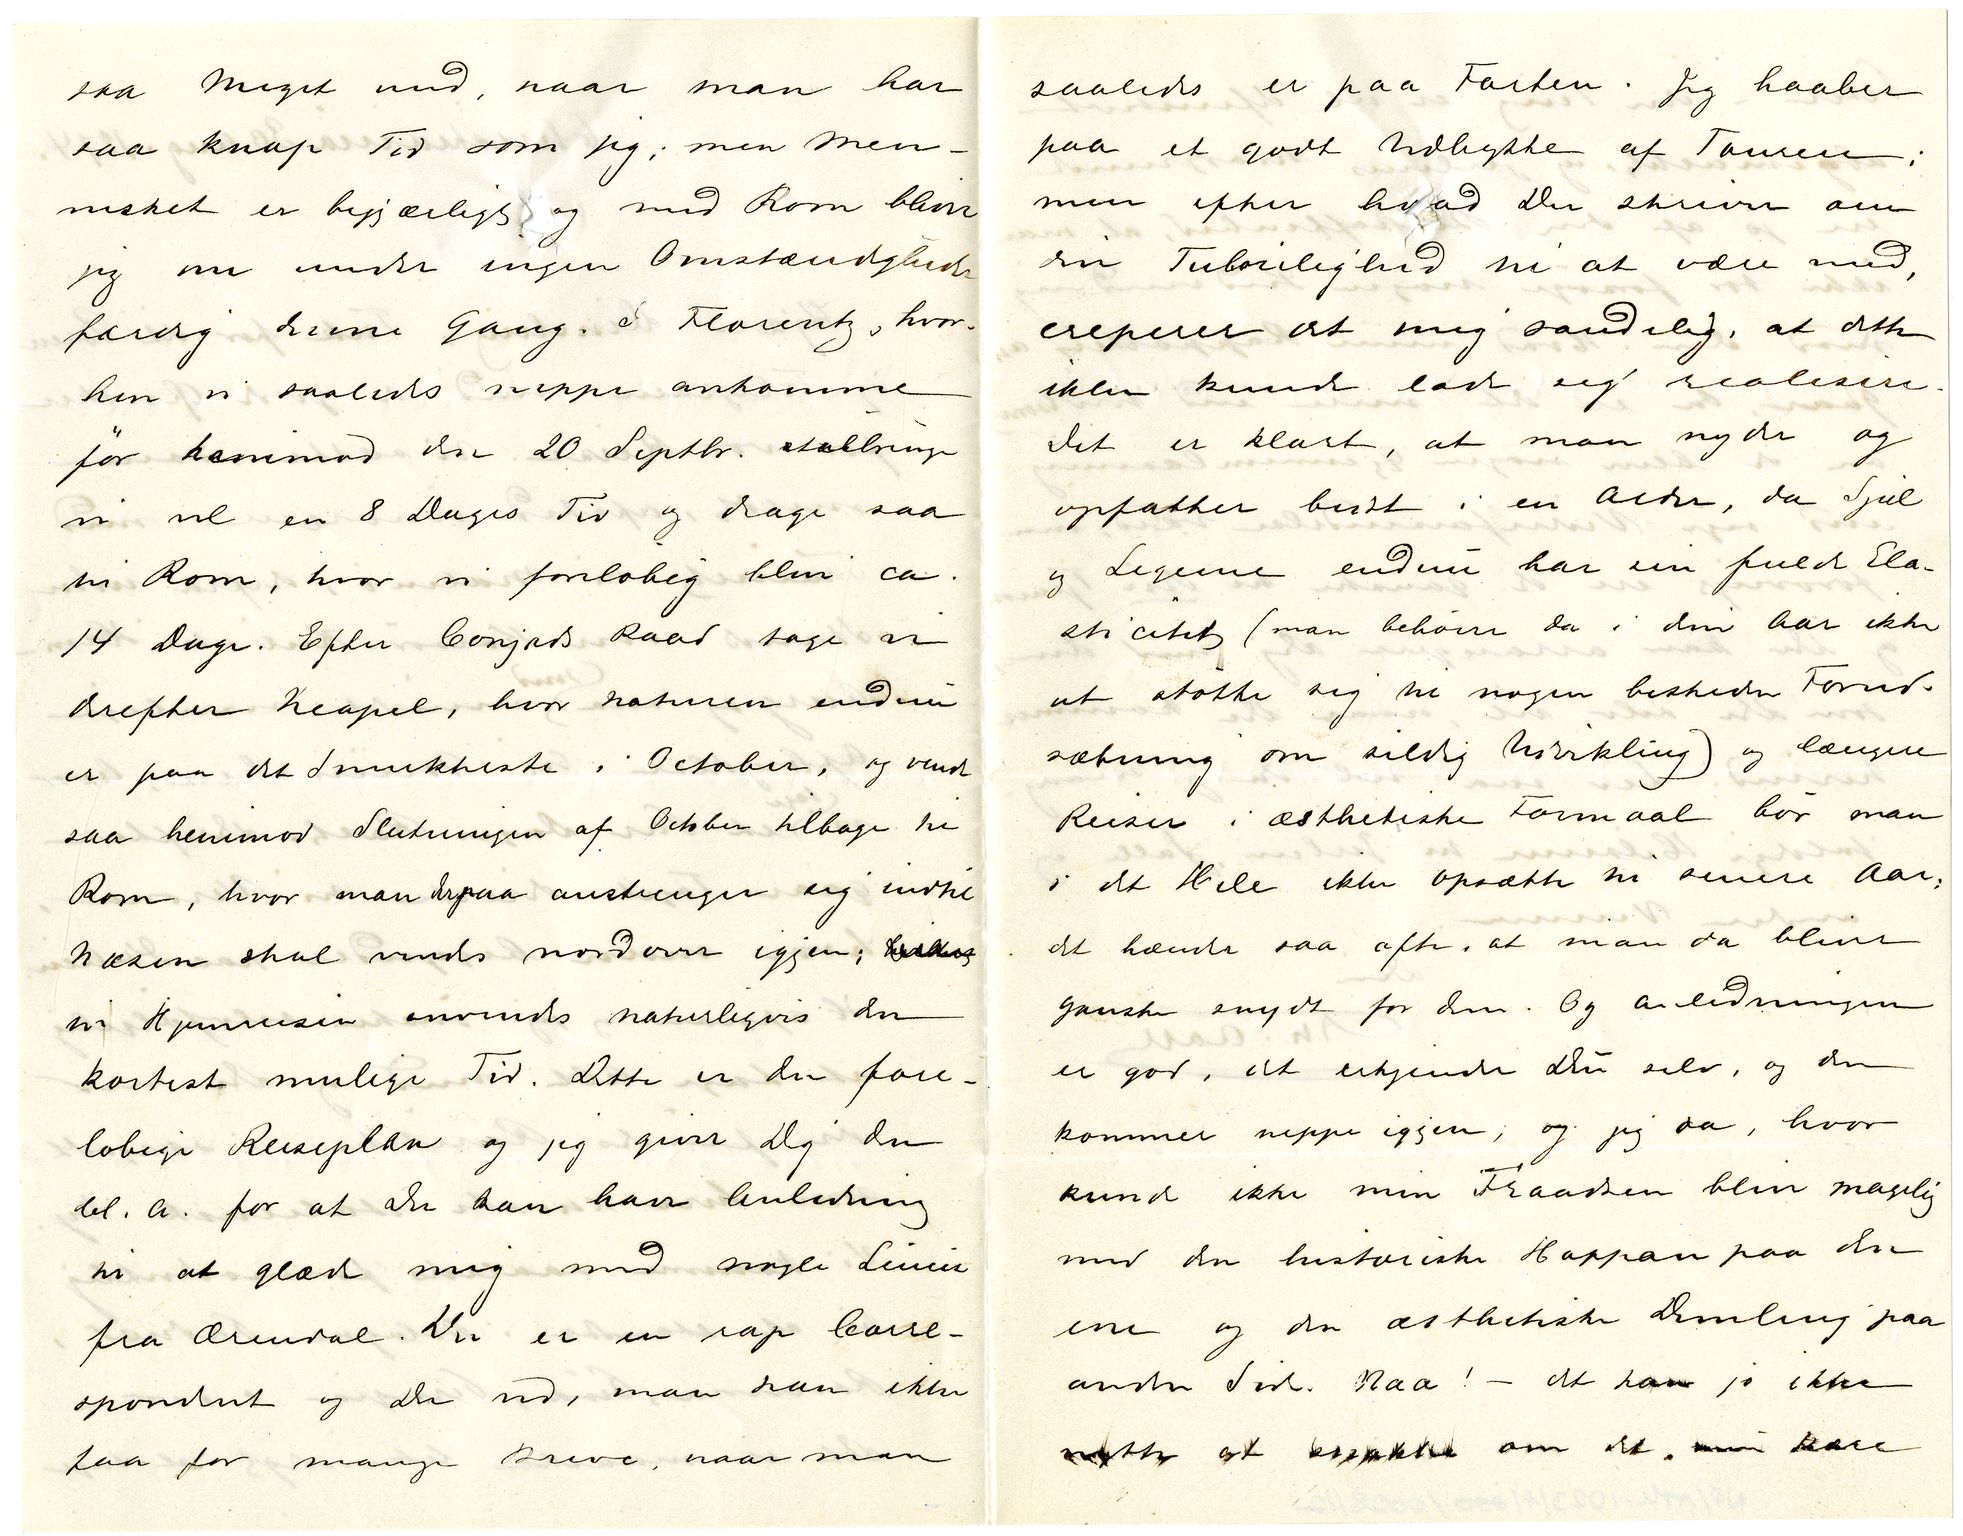 saa Meget med, naar man har
saa knap Tid som jeg; men Men-
nesket er begjærligt og med Rom bliver
jeg nu under ingen Omstændigheder
færdig denne Gang. I Florentz, hvor-
hen vi saaledes neppe ankomme
før henimod den 20 Septbr. tilbringe
vi vel en 8 Dages Tid og drage saa
til Rom, hvor vi foreløbig blive ca.
14 Dage. Efter Conjeds Raad tage vi
derefter Neapel, hvor Naturen endnu
er paa det Smukkeste i October, og vende
saa henimod Slutningen af October tilbage til
Rom, hvor man derpaa anstrenger sig indtil
Næsen skal vendes nordover igjen;
til Hjemreisen anvendes naturligvis den
kortest mulige Tid. Dette er den fore-
løbige Reiseplan og jeg giver Dig den
bl. A. for at Du kan have Anledning
til at glæde mig med nogle Linier
fra Arendal. Du er en rap Corre-
spondent og Du ved, man kan ikke
faa for mange Breve, naar man
saaledes er paa Farten. Jeg haaber
paa et godt Udbytte af Touren;
men efter hvad Du skriver om
din Tilbøielighed til at være med,
creperer det mig sandelig, at dette
ikke kunde lade sig realisere.
Det er klart, at man nyder og
opfatter bedst i en Alder, da Sjæl
og Legeme endnu har sin fulde Ela-
sticitet (man behøver da i dine Aar ikke
at støtte sig til nogen beskeden Forud-
sætning om sildig Udvikling) og længere
Reiser i æsthetiske Formaal bør man
i det Hele ikke opsætte til senere Aar;
det hænder saa ofte, at man da bliver
ganske snydt for dem. Og Anledningen
er god, det erkjender Du selv, og den
kommer neppe igjen; og jeg da, hvor
kunde ikke min Fraadsen blive magelig
med den historiske Hoppan paa den
ene og den æsthetiske Demling paa
anden Side. Naa! – det kan jo ikke
nytte at snakke om det, min kære